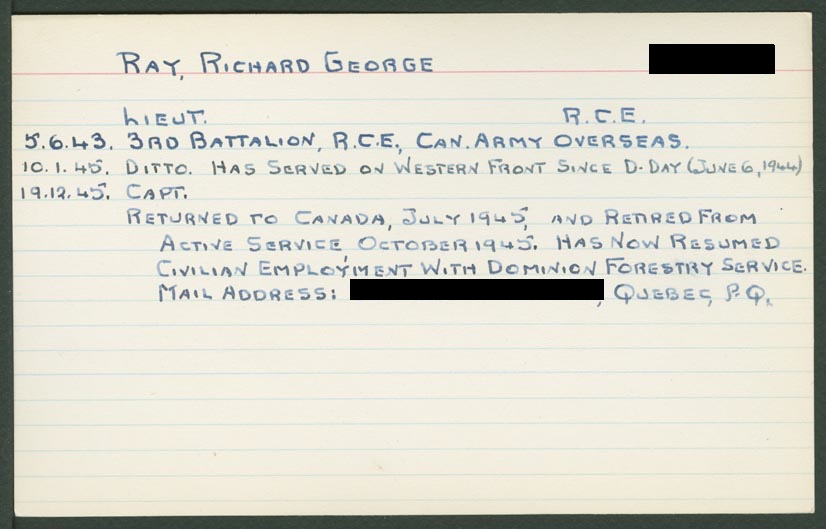 RAY, RICHARD GEORGE
LIEUT. R.C.E.
5.6.43. 3RD BATTALION, R.C.E., CAN. ARMY OVERSEAS.
10.1.45. DITTO. HAS SERVED ON WESTERN FRONT SINCE D-DAY (JUNE 6, 1944)
19.12.45. CAPT.
RETURNED TO CANADA, JULY 1945, AND RETIRED FROM
ACTIVE SERVICE, OCTOBER 1945. HAS NOW RESUMED
CIVILIAN EMPLOYMENT WITH DOMINION FORESTRY SERVICE.
MAIL ADDRESS: , QUEBEC, P.Q.